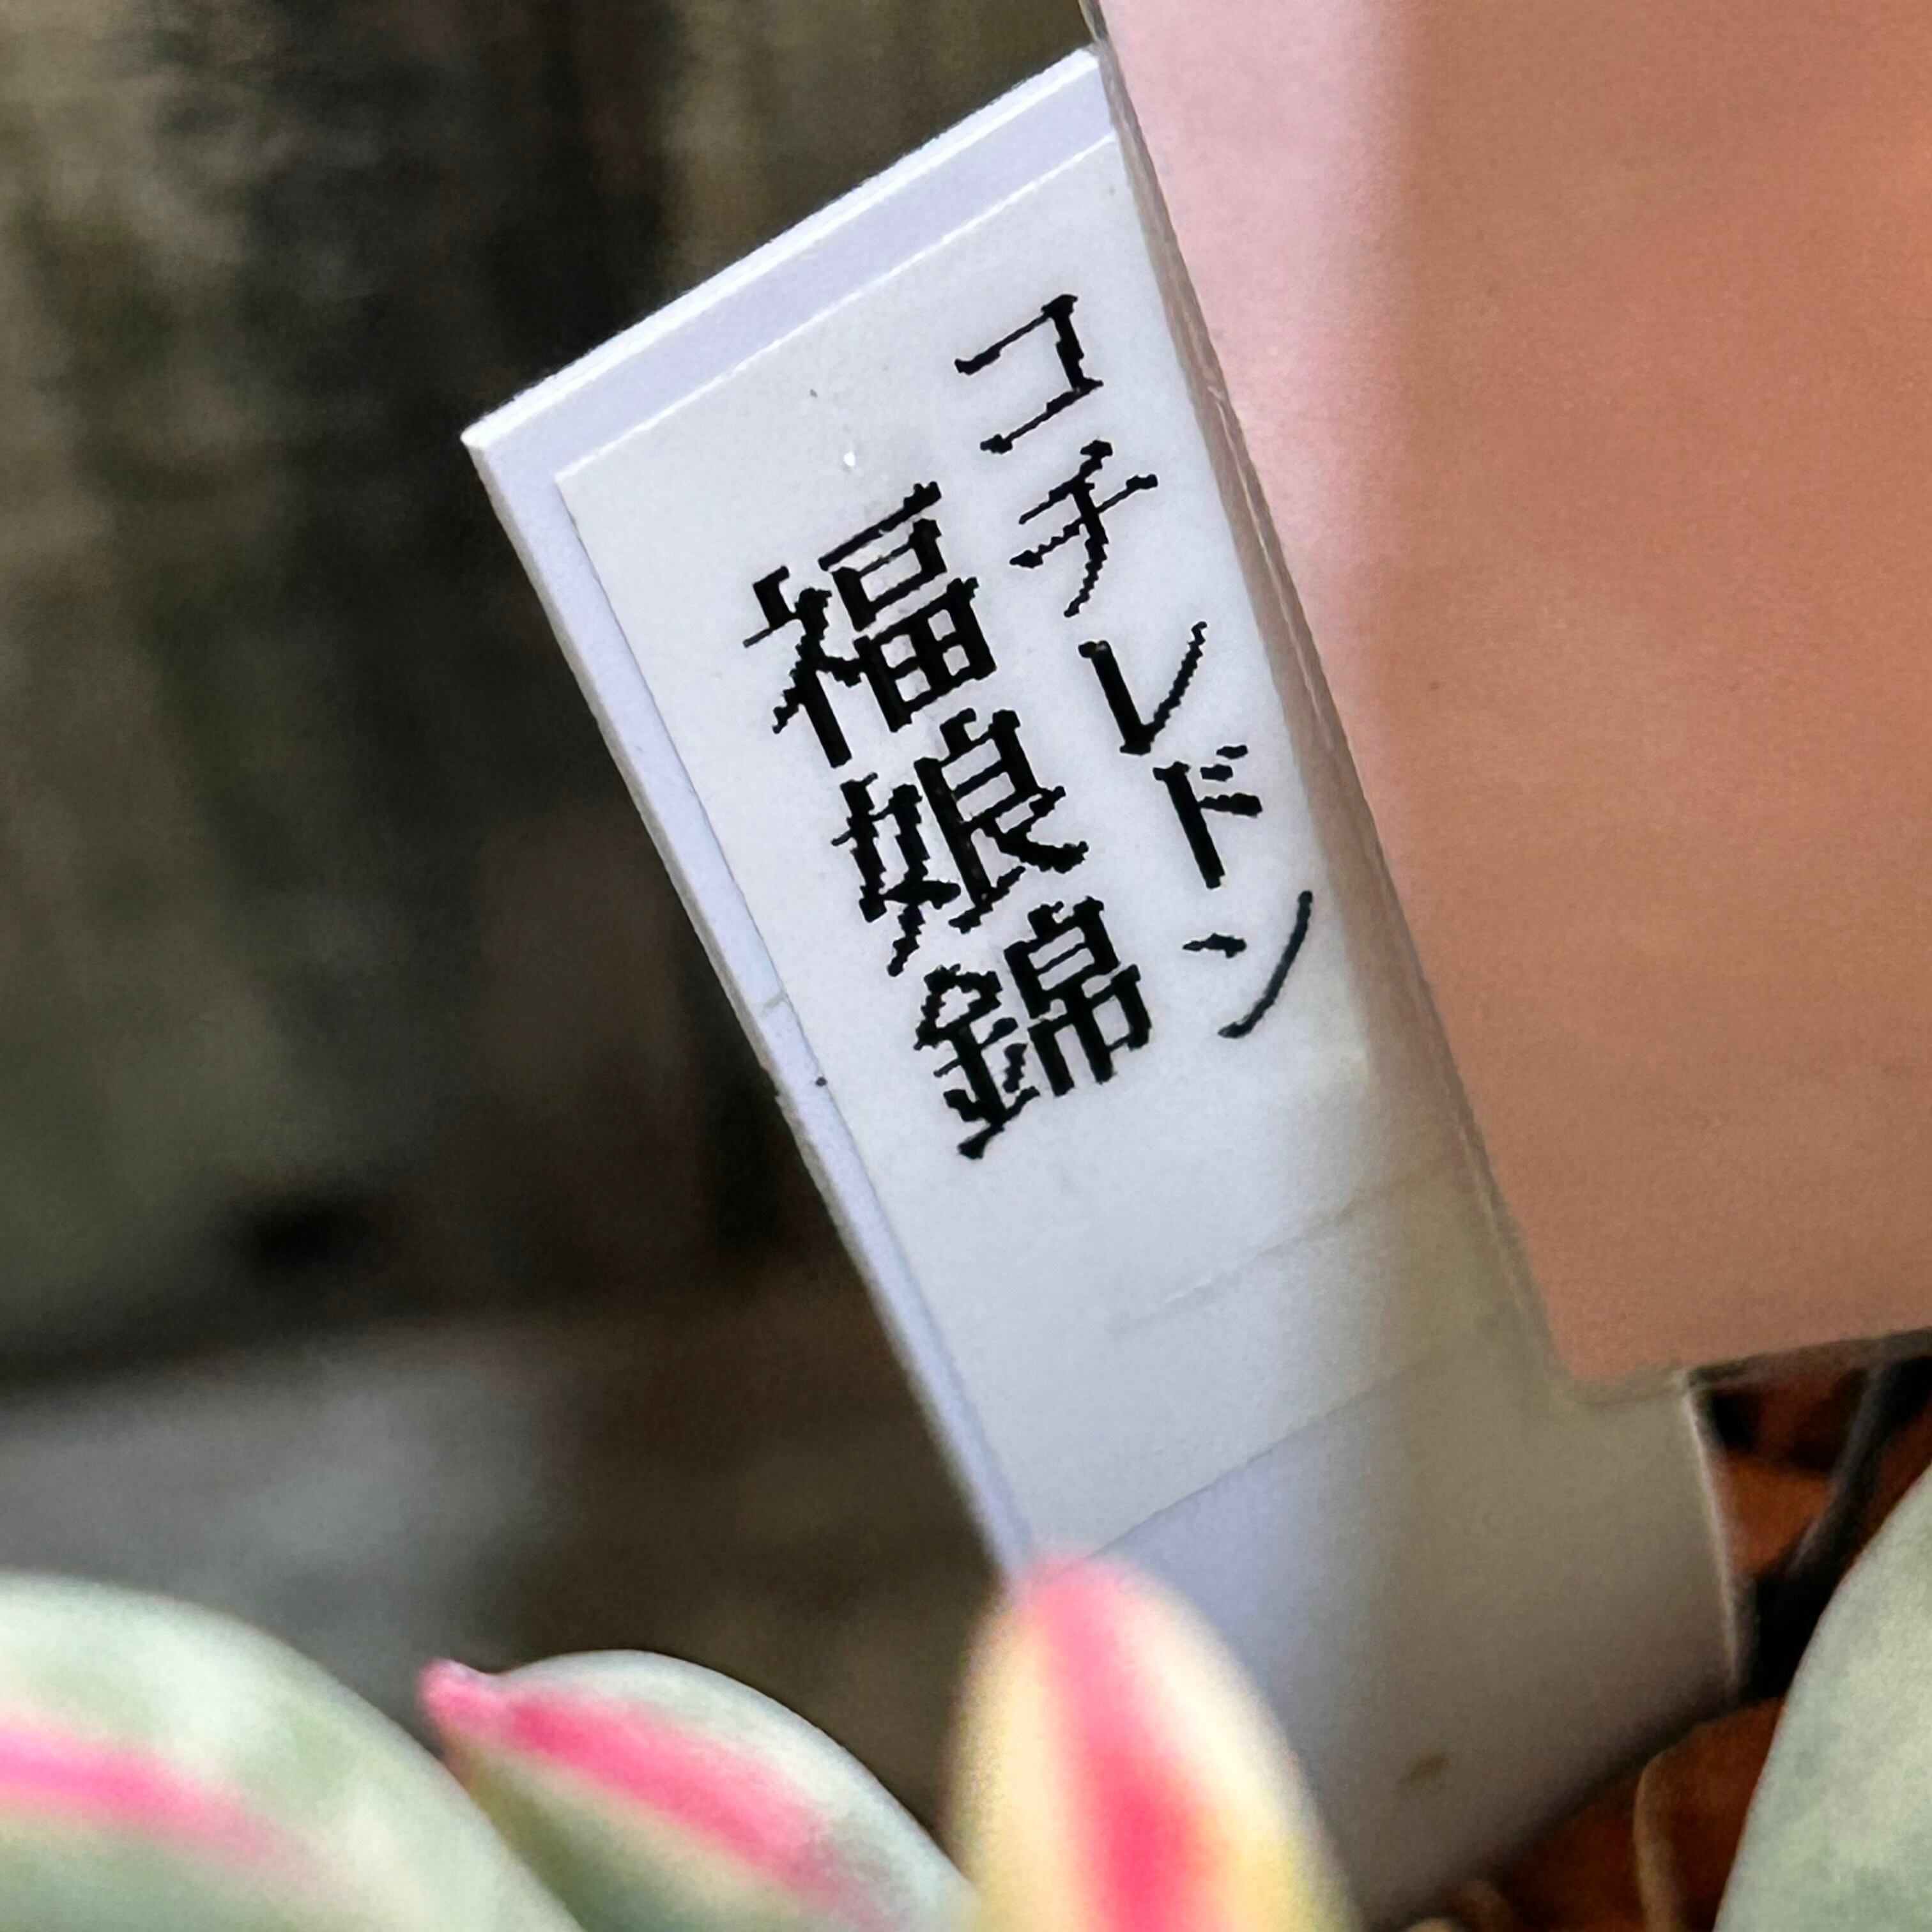 コチレドン
福娘錦